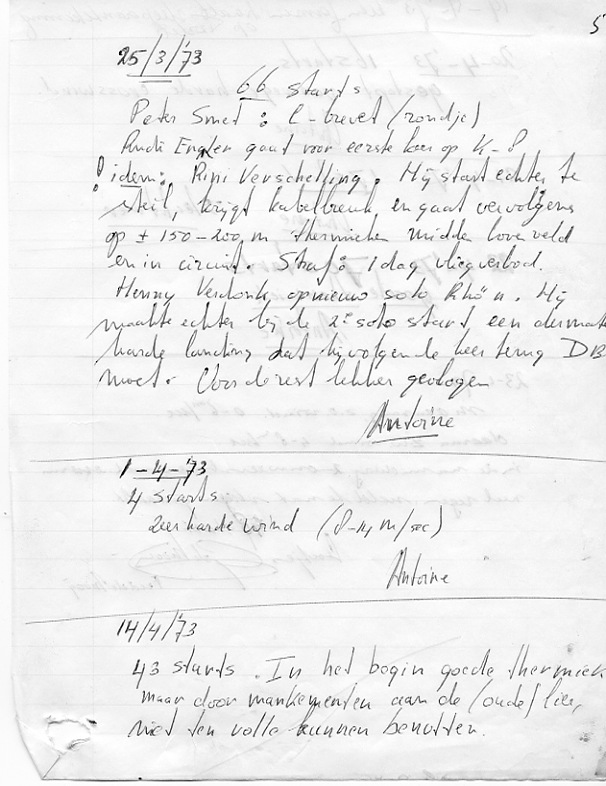 5
25/3/'73
66 starts
Peter Smet : C-brevet (rondje)
Rudi Engler gaat voor eerste keer op K-8
! idem: Rini Verschelling. Hij start echter, te
steil, krijgt kabelbreuk en gaat vervolgens
op ± 150-200 m thermieken midden boven veld
en in circuit. Straf: 1 dag vliegverbod.
Henny Verdonk, opnieuw solo Rhön. Hij
maakte echter bij de 2e solo start, een dermate
harde landing dat hij volgende keer terug DB
moet. Voor de rest lekker gevlogen
Antoine
1-4-'73
4 starts
Zeer harde wind (8-14 m/sec)
Antoine
14/4/'73
43 starts. In het begin goede thermiek
maar door mankementen aan de (oude) lier,
niet ten volle kunnen benutten.